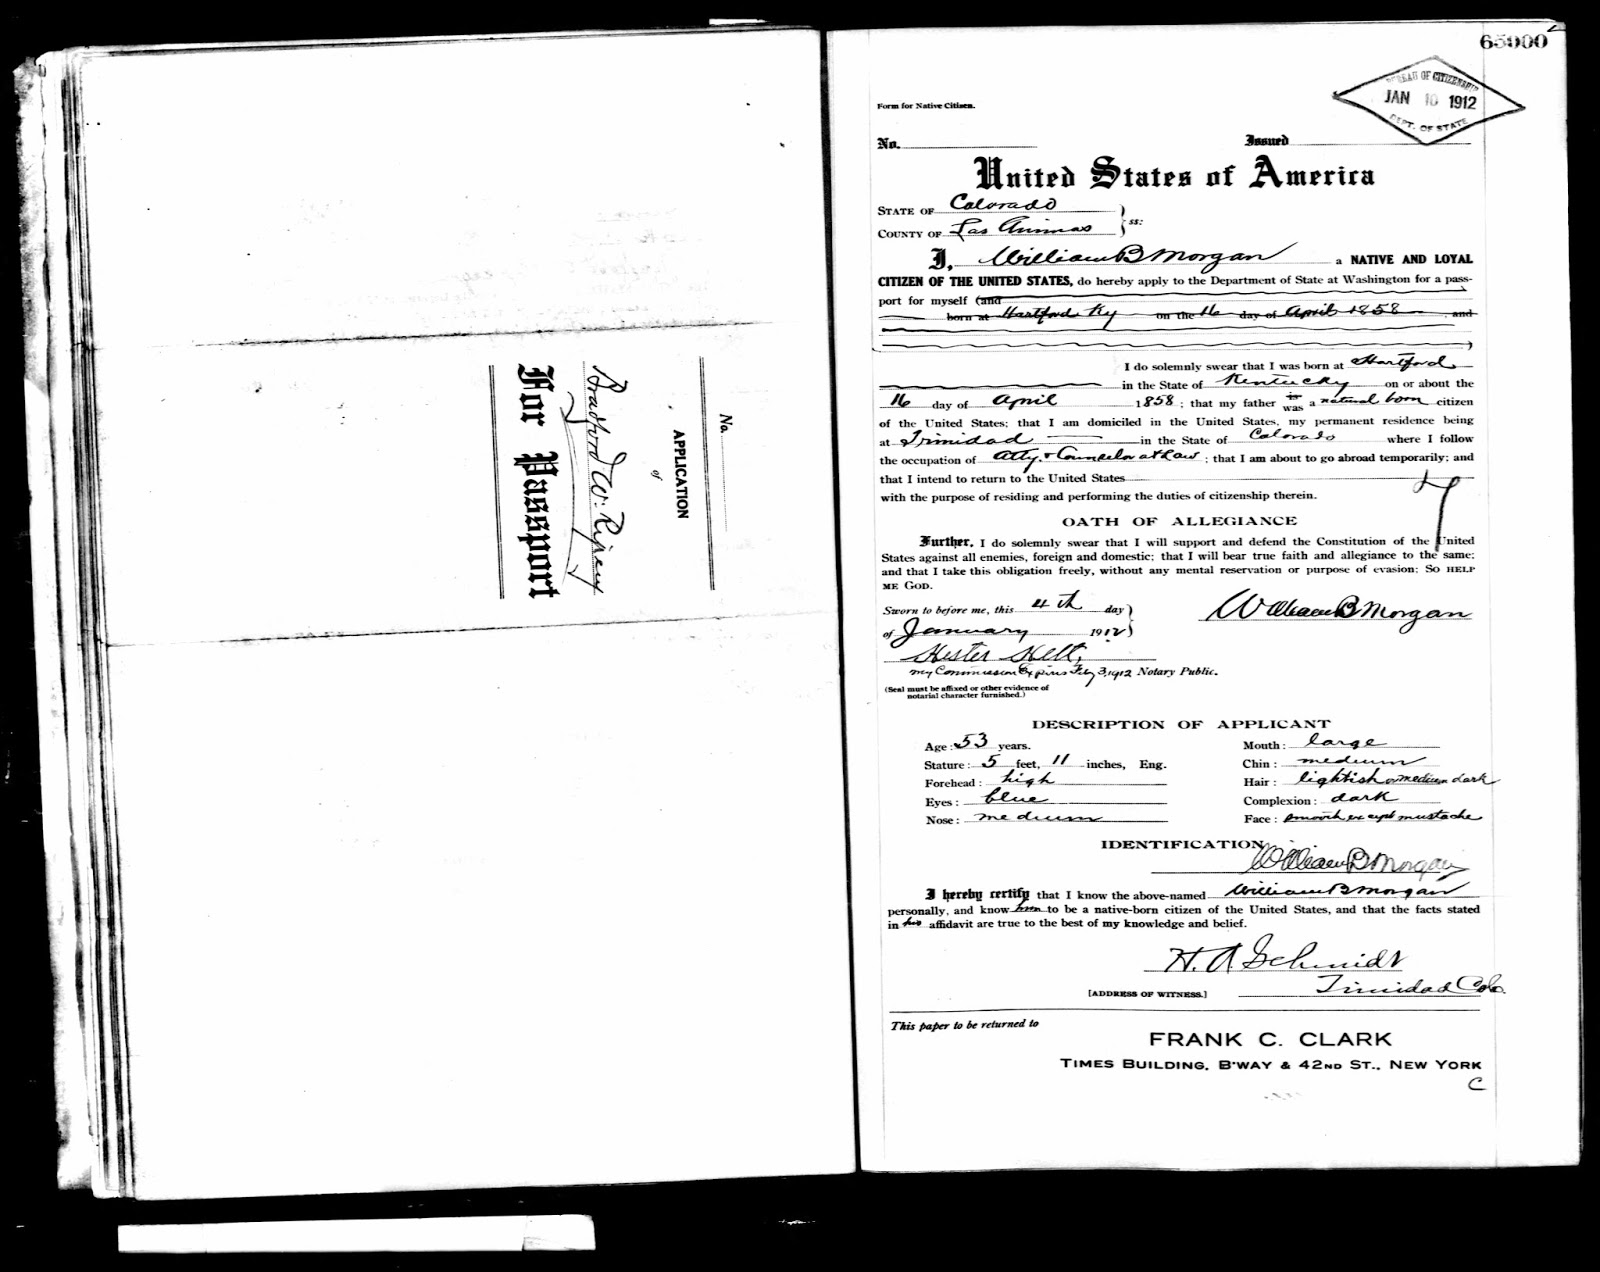 No.
APPLICATION
of
Bradford W. Ripley
For Passport
65000
BUREAU OF CITIZENSHIP
JAN 10 1912
DEPT. OF STATE
Form for Native Citizen.
No. Issued
United States of America
STATE OF Colorado
COUNTY OF Las Animas } ss:
I, William B Morgan a NATIVE AND LOYAL
CITIZEN OF THE UNITED STATES, do hereby apply to the Department of State at Washington for a pass-
port for myself (and
born at Hartford Ky on the 16 day of April 1858 and
)
I do solemnly swear that I was born at Hartford
in the State of Kentucky on or about the
16 day of April 1858; that my father is was a natural born citizen
of the United States; that I am domiciled in the United States, my permanent residence being
at Trinidad in the State of Colorado where I follow
the occupation of Atty. & Councelor at Law; that I am about to go abroad temporarily; and
that I intend to return to the United States
with the purpose of residing and performing the duties of citizenship therein.
OATH OF ALLEGIANCE
Further, I do solemnly swear that I will support and defend the Constitution of the United
States against all enemies, foreign and domestic; that I will bear true faith and allegiance to the same;
and that I take this obligation freely, without any mental reservation or purpose of evasion: SO HELP
ME GOD.
Sworn to before me, this 4th day
of January 1912 William B Morgan
Hester
My Commission Expires Feby 3, 1912 Notary Public.
(Seal must be affixed or other evidence of
notarial character furnished.)
DESCRIPTION OF APPLICANT
Age: 53 years. Mouth: large
Stature: 5 feet, 11 inches, Eng. Chin: medium
Forehead: high Hair: lightish or medium dark
Eyes: blue Complexion: dark
Nose: medium Face: smooth except mustache
IDENTIFICATION
William B Morgan
I hereby certify that I know the above-named William B Morgan
personally, and know him to be a native-born citizen of the United States, and that the facts stated
in his affidavit are true to the best of my knowledge and belief.
H. A Schmidt
[ADDRESS OF WITNESS.] Trinidad Colo.
This paper to be returned to
FRANK C. CLARK
TIMES BUILDING, B'WAY & 42ND ST., NEW YORK
C